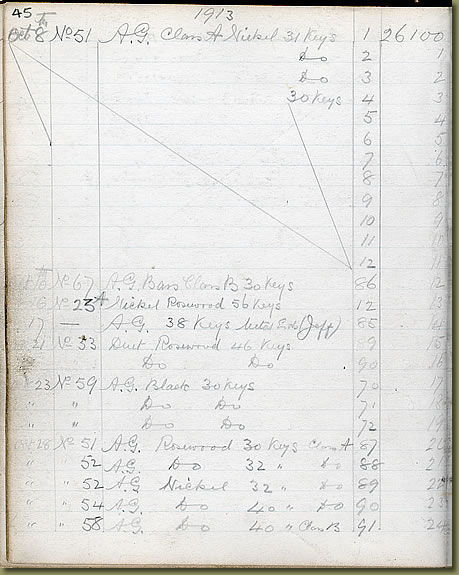 45 1913
Oct 8th No 51 A.G. Class A Nickel 31 Keys 1 26100
Do 2 1
Do 3 2
30 Keys 4 3
5 4
6 5
7 6
8 7
9 8
10 9
11 10
12 11
No 67 A.G. Bars Class B 30 Keys 86 12
16 No 23A Nickel Rosewood 56 Keys 12 13
17 — A.G. 38 Keys Metal (Jeff) 85 14
21 No 33 Duet Rosewood 46 Keys 9 15
Do Do 90 16
23 No 59 A.G. Black 30 Keys 70 17
" " Do Do 71
" " Do Do 72 19
28 No 51 A.G. Rosewood 30 Keys Class A 87
" 52 A.G. Do 32 " Do 88
" " 52 A.G. Nickel 32 " Do 89
" " 54 A.G. Do 40 " Do 90
" " 58 A.G. Do 40 " Class B 91 24